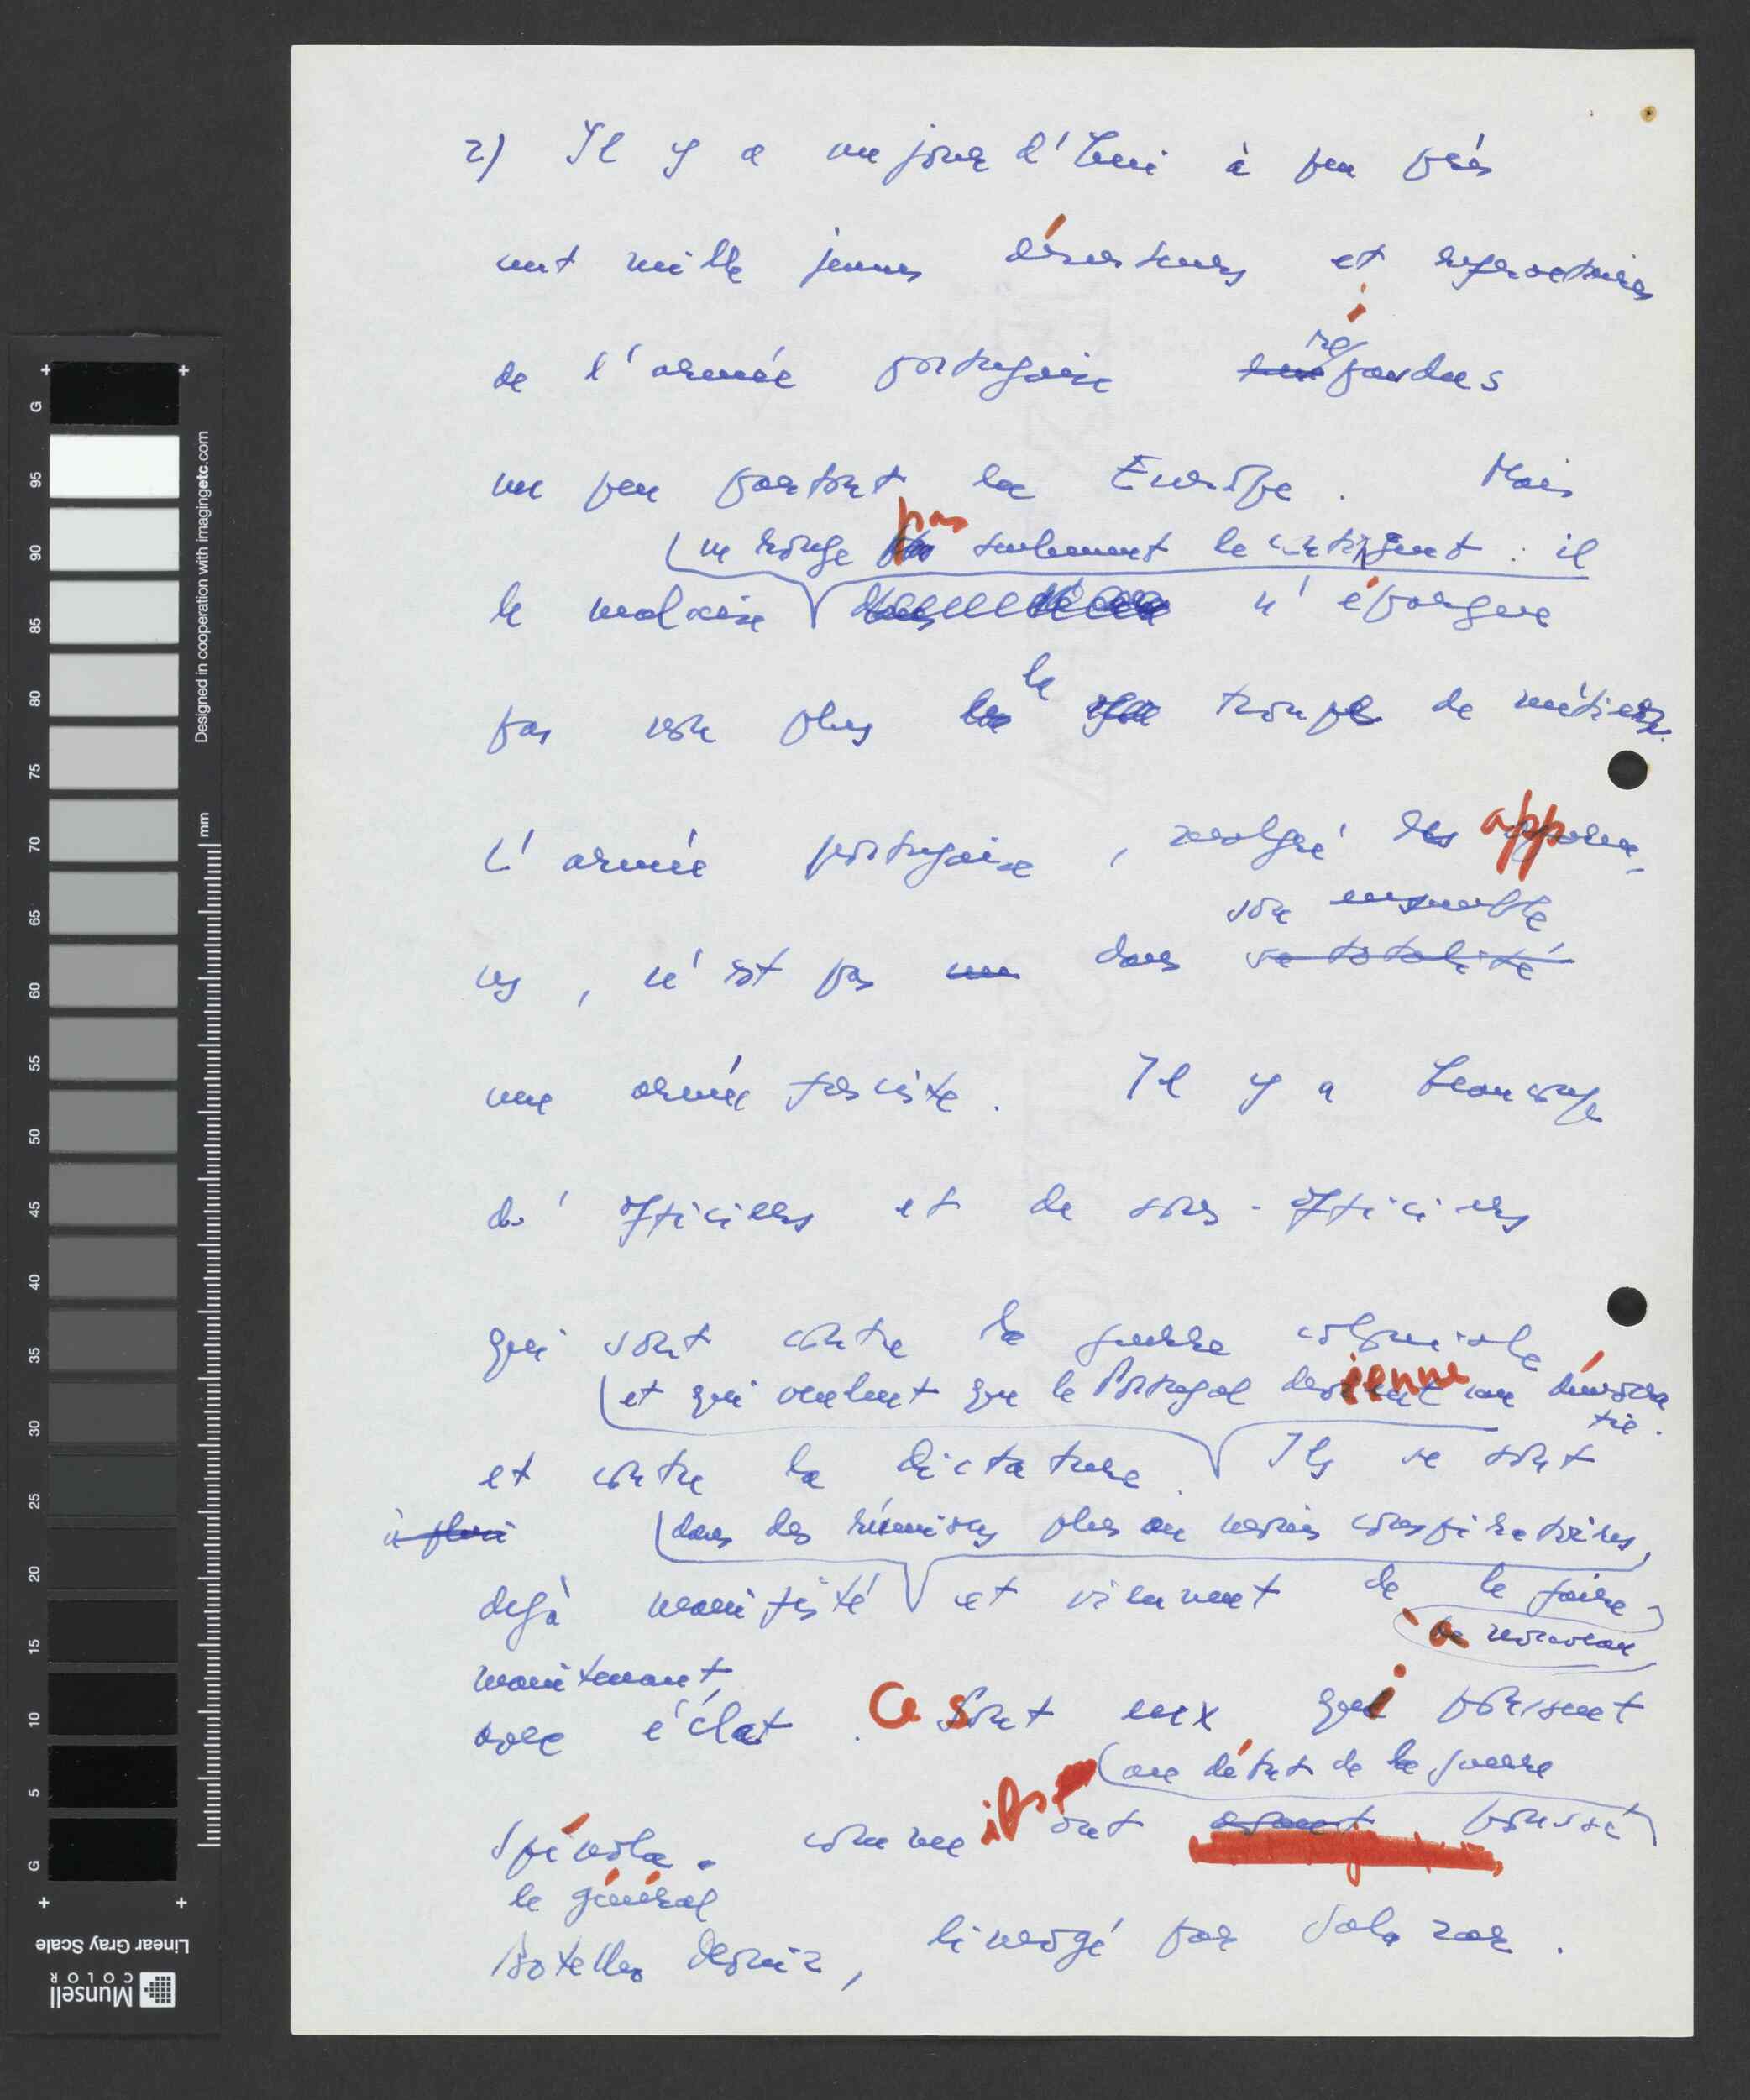 2) Il y a aujourd'hui à peu près
cent mille jeunes déserteurs et réfractaires
de l'armée portugaise répandus
un peu partout en Europe. Mais
ne ronge pas seulement le contingent : il
le malaise n'épargne
pas non plus la troupe de métier.
L'armée portugaise, malgré les apparen-
ces, n'est pas dans son ensemble
sa totalité
une armée fasciste. Il y a beaucoup
d'officiers et de sous-officiers
qui sont contre la guerre coloniale
et qui veulent que le Portugal devienne une démocra
tie.
et contre la dictature. Ils se sont
à pluri
dans des réunions plus ou moins conspiratoires,
dejà manifesté et viennent de le faire
à nouveau
maintenant,
avec éclat. Ce sont eux qui poussent
au début de la guerre
Spínola. comme ils ont poussé
le général
Botelho Moniz, limogé par Salazar.
Designed in cooperation with imagingetc.com
mm
G
95
90
85
80
75
70
65
60
55
50
45
40
35
30
25
20
15
10
5
G
Linear Gray Scale
Munsell
COLOR